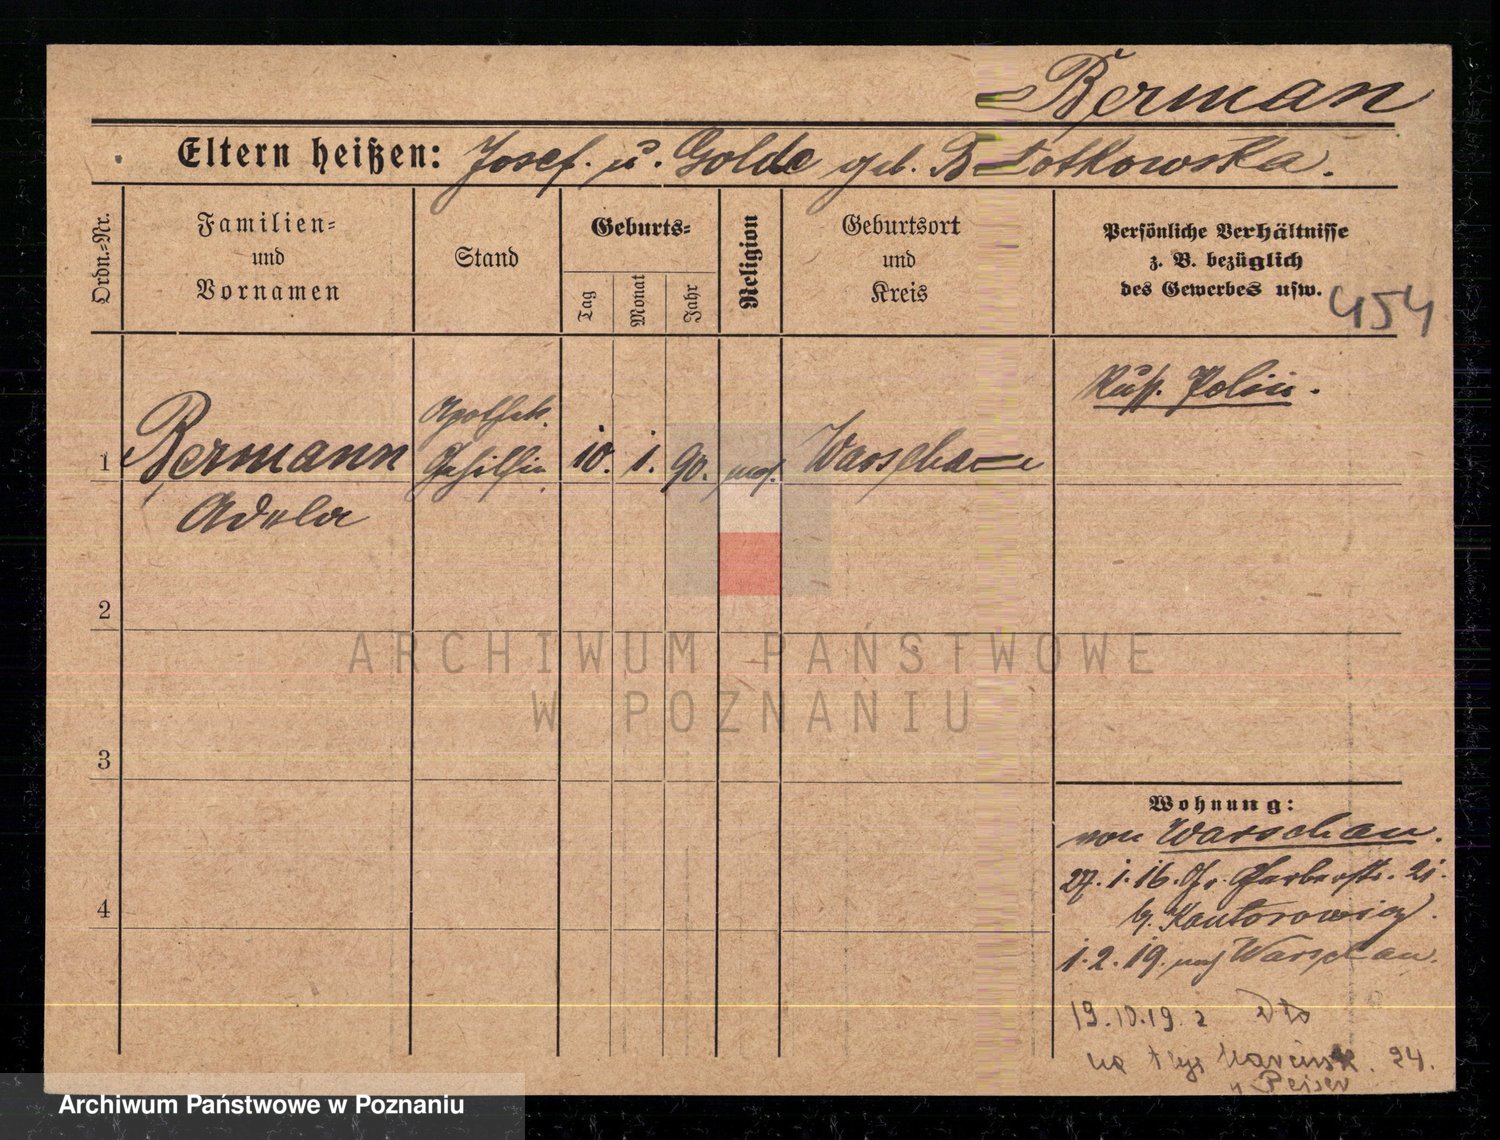 Berman
Eltern heißen: Josef. u. Golde geb. Błotkowska.
Ordn.=Nr.
Familien=
und
Vornamen
Stand
Geburts=
Tag
Monat
Jahr
Religion
Geburtsort
und
Kreis
Persönliche Verhältnisse
z. B. bezüglich
des Gewerbes usw.
454
Russ. Polin.
1 Bermann Apothek. Gehilfin 10. 1. 90. mos. Warschau
Adela
2
3
4
ARCHIWUM PAŃSTWOWE
W POZNANIU
Wohnung:
von Warschau.
27.1.16. Gr. Gerberstr. 21.
b. Kantorowicz.
1.2.19. nach Warschau.
19.10.19. z dto
na
Marcinsk. 24.
u Peiser
Archiwum Państwowe w Poznaniu